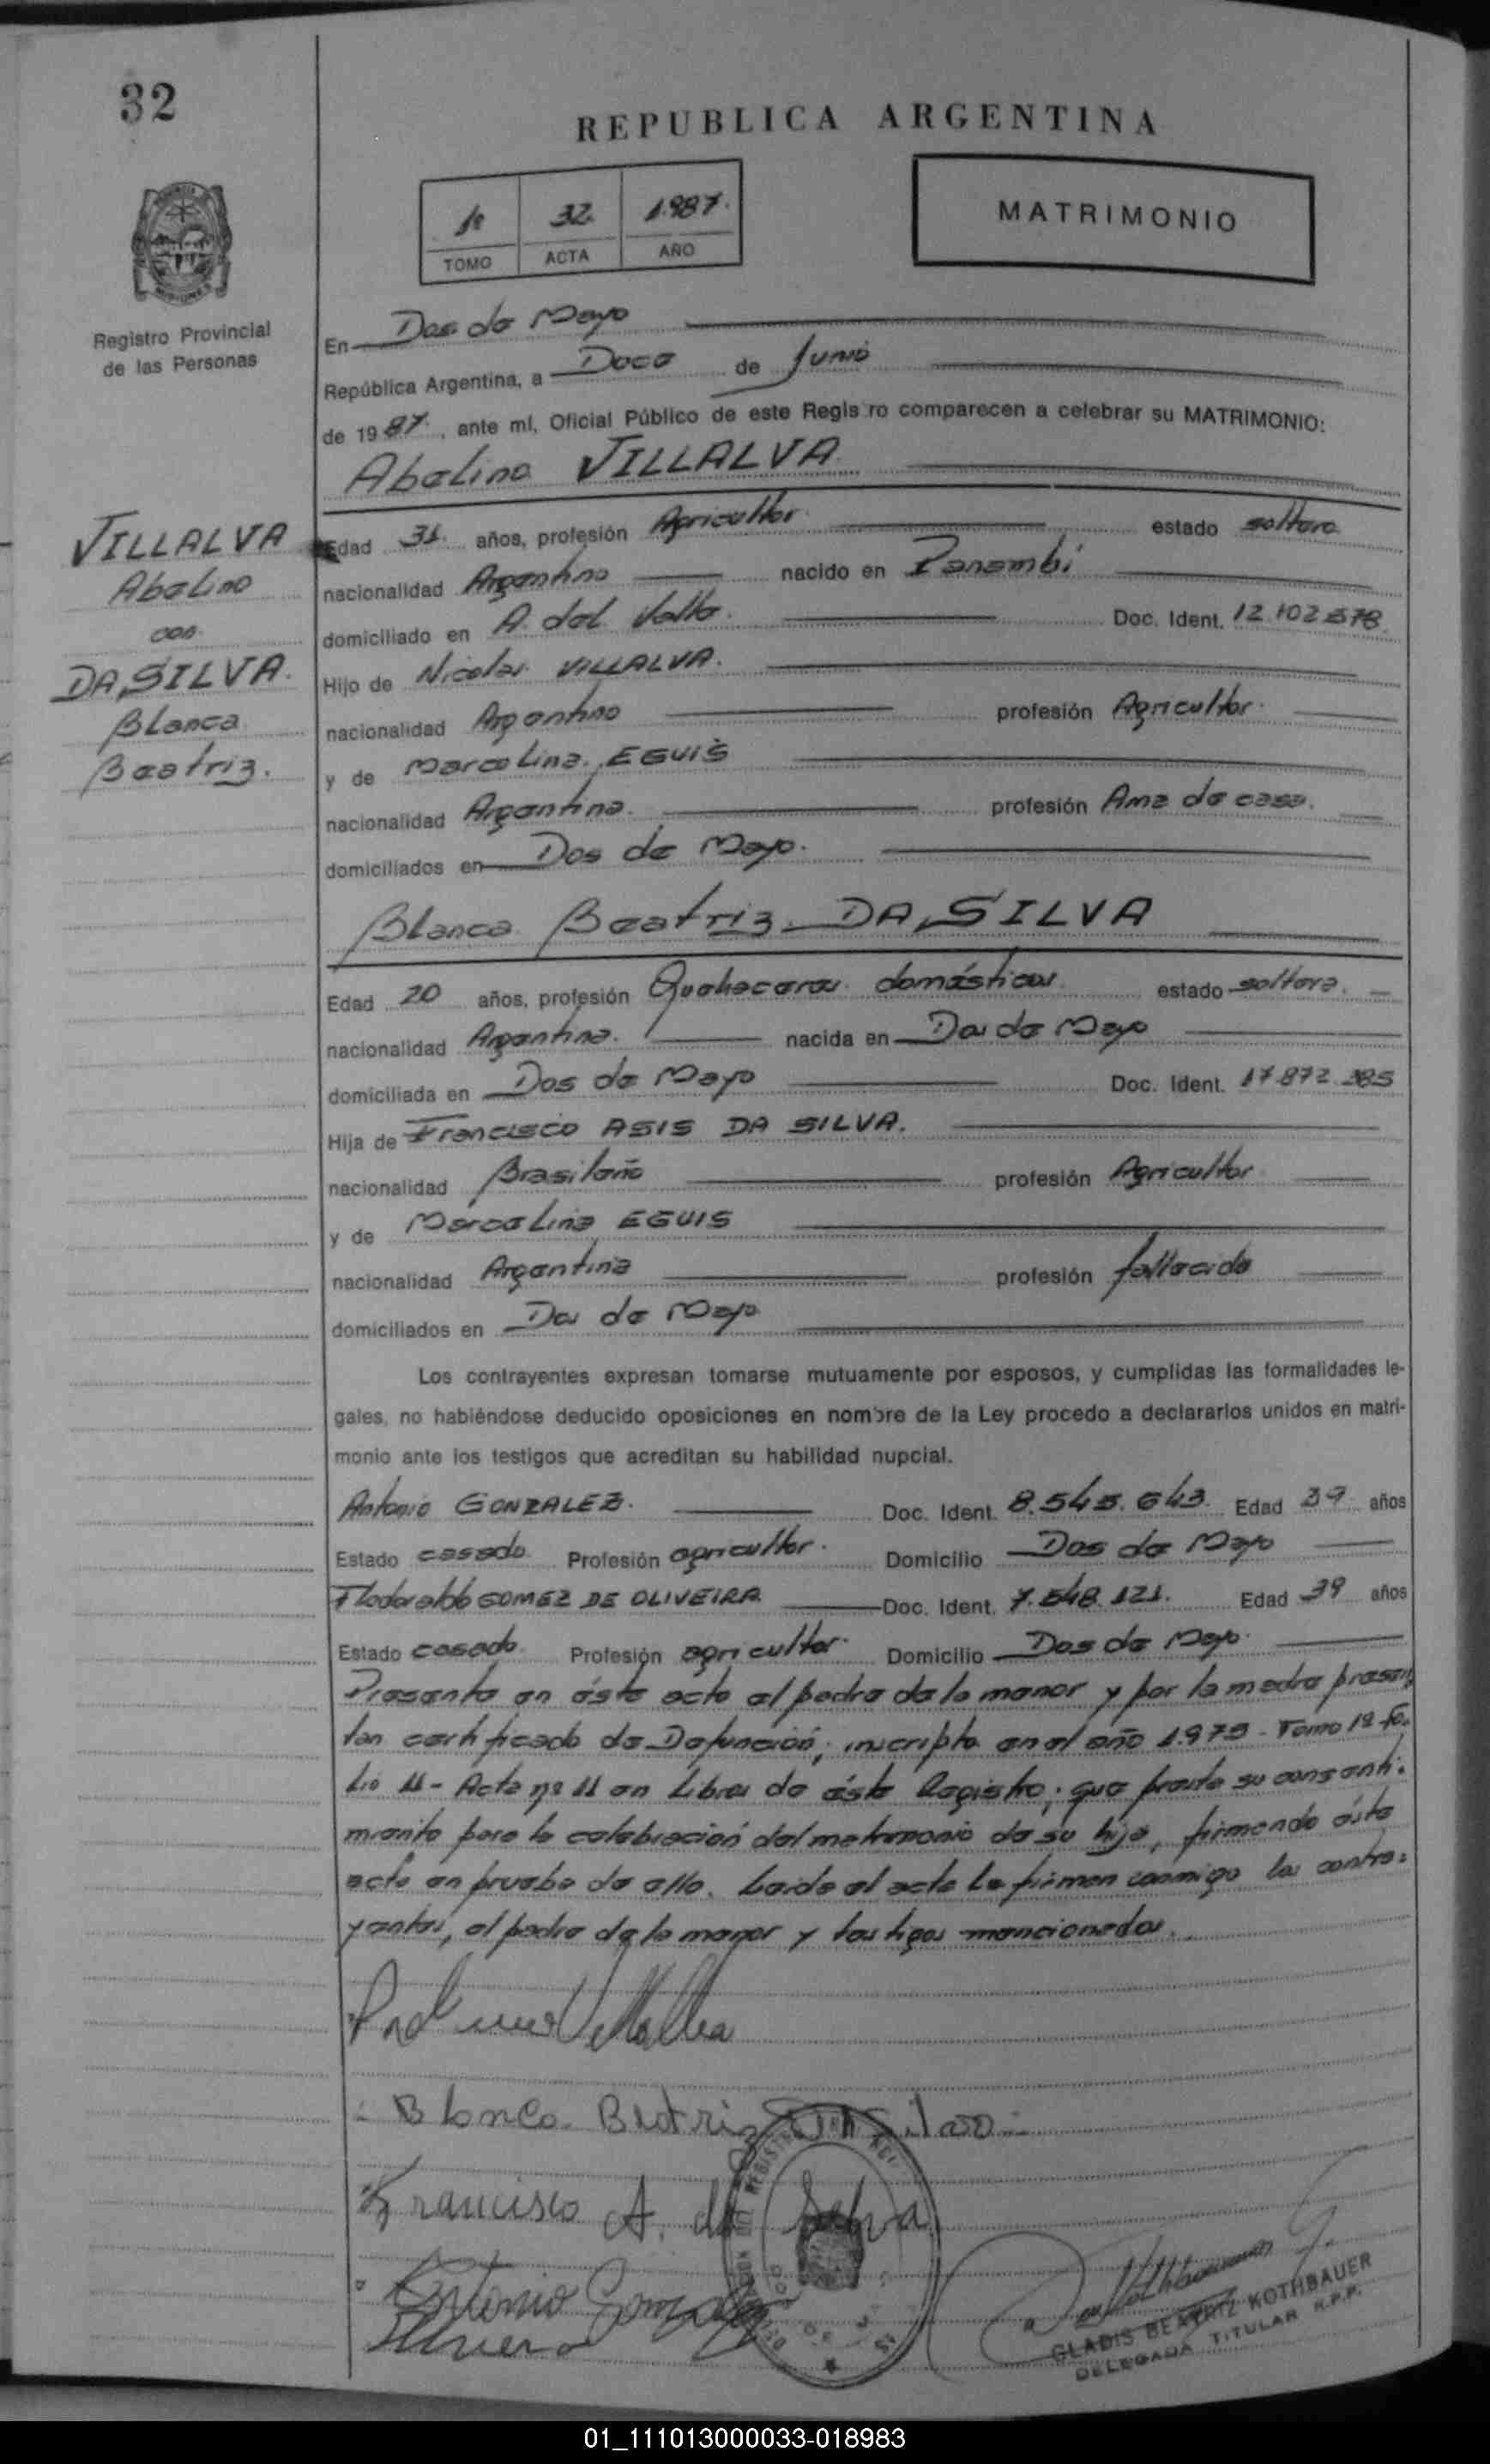 32
REPUBLICA ARGENTINA
1º 32 1.987.
TOMO ACTA AÑO
MATRIMONIO
Registro Provincial
de las Personas
En Dos de Mayo
República Argentina, a Doce de Junio
de 1987, ante mí, Oficial Público de este Registro comparecen a celebrar su MATRIMONIO:
Abelino VILLALVA
VILLALVA
Abelino
con
DA SILVA.
Blanca
Beatriz.
Edad 31 años, profesión Agricultor estado soltero
nacionalidad Argentino nacido en Panambí
domiciliado en A. del Valle Doc. Ident. 12.102.578
Hijo de Nicolas VILLALVA.
nacionalidad Argentino profesión Agricultor
y de Marcelina EGUIS
nacionalidad Argentina. profesión Ama de casa.
domiciliados en Dos de Mayo.
Blanca Beatriz DA SILVA
Edad 20 años, profesión Quehaceres domésticos estado soltera.
nacionalidad Argentina. nacida en Dos de Mayo
domiciliada en Dos de Mayo Doc. Ident. 17.872.385
Hija de Francisco ASIS DA SILVA.
nacionalidad Brasileño profesión Agricultor
y de Marcelina EGUIS
nacionalidad Argentina profesión fallecida
domiciliados en Dos de Mayo
Los contrayentes expresan tomarse mutuamente por esposos, y cumplidas las formalidades le-
gales, no habiéndose deducido oposiciones en nombre de la Ley procedo a declararlos unidos en matri-
monio ante los testigos que acreditan su habilidad nupcial.
Antonio GONZALEZ. Doc. Ident. 8.545.643. Edad 39 años
Estado casado Profesión agricultor. Domicilio Dos de Mayo
Flodoaldo GOMEZ DE OLIVEIRA Doc. Ident. 7.548.121. Edad 39 años
Estado casado Profesión agricultor. Domicilio Dos de Mayo.
Presente en éste acto el padre de la menor y por la madre presen
tan certificado de Defunción, inscripta en el año 1.975 - Tomo 1º fo-
lio 11 - Acta nº 11 en Libros de éste Registro; que presta su consenti-
miento para la celebración del matrimonio de su hija, firmando ésta
acta en prueba de ello. Leida el acta la firman conmigo los contra-
yentes, el padre de la menor y testigos mencionados.
Villalba
Blanca Beatriz Da Silva
Francisco A. da Selva
Antonio Gonzalez
GLADIS BEATRIZ KOTHBAUER
DELEGADA TITULAR R.P.P.
01_111013000033-018983